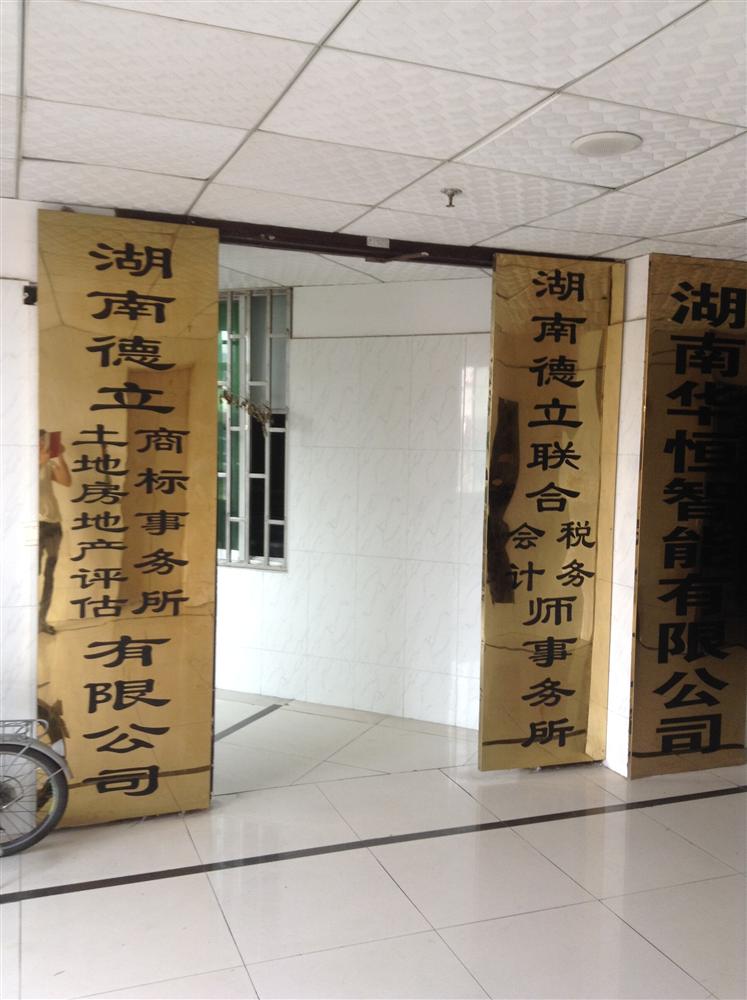 湖南德立
商标事务所
土地房地产评估
有限公司
湖南德立联合
税务
会计
师事务所
湖南华恒智能有限公司